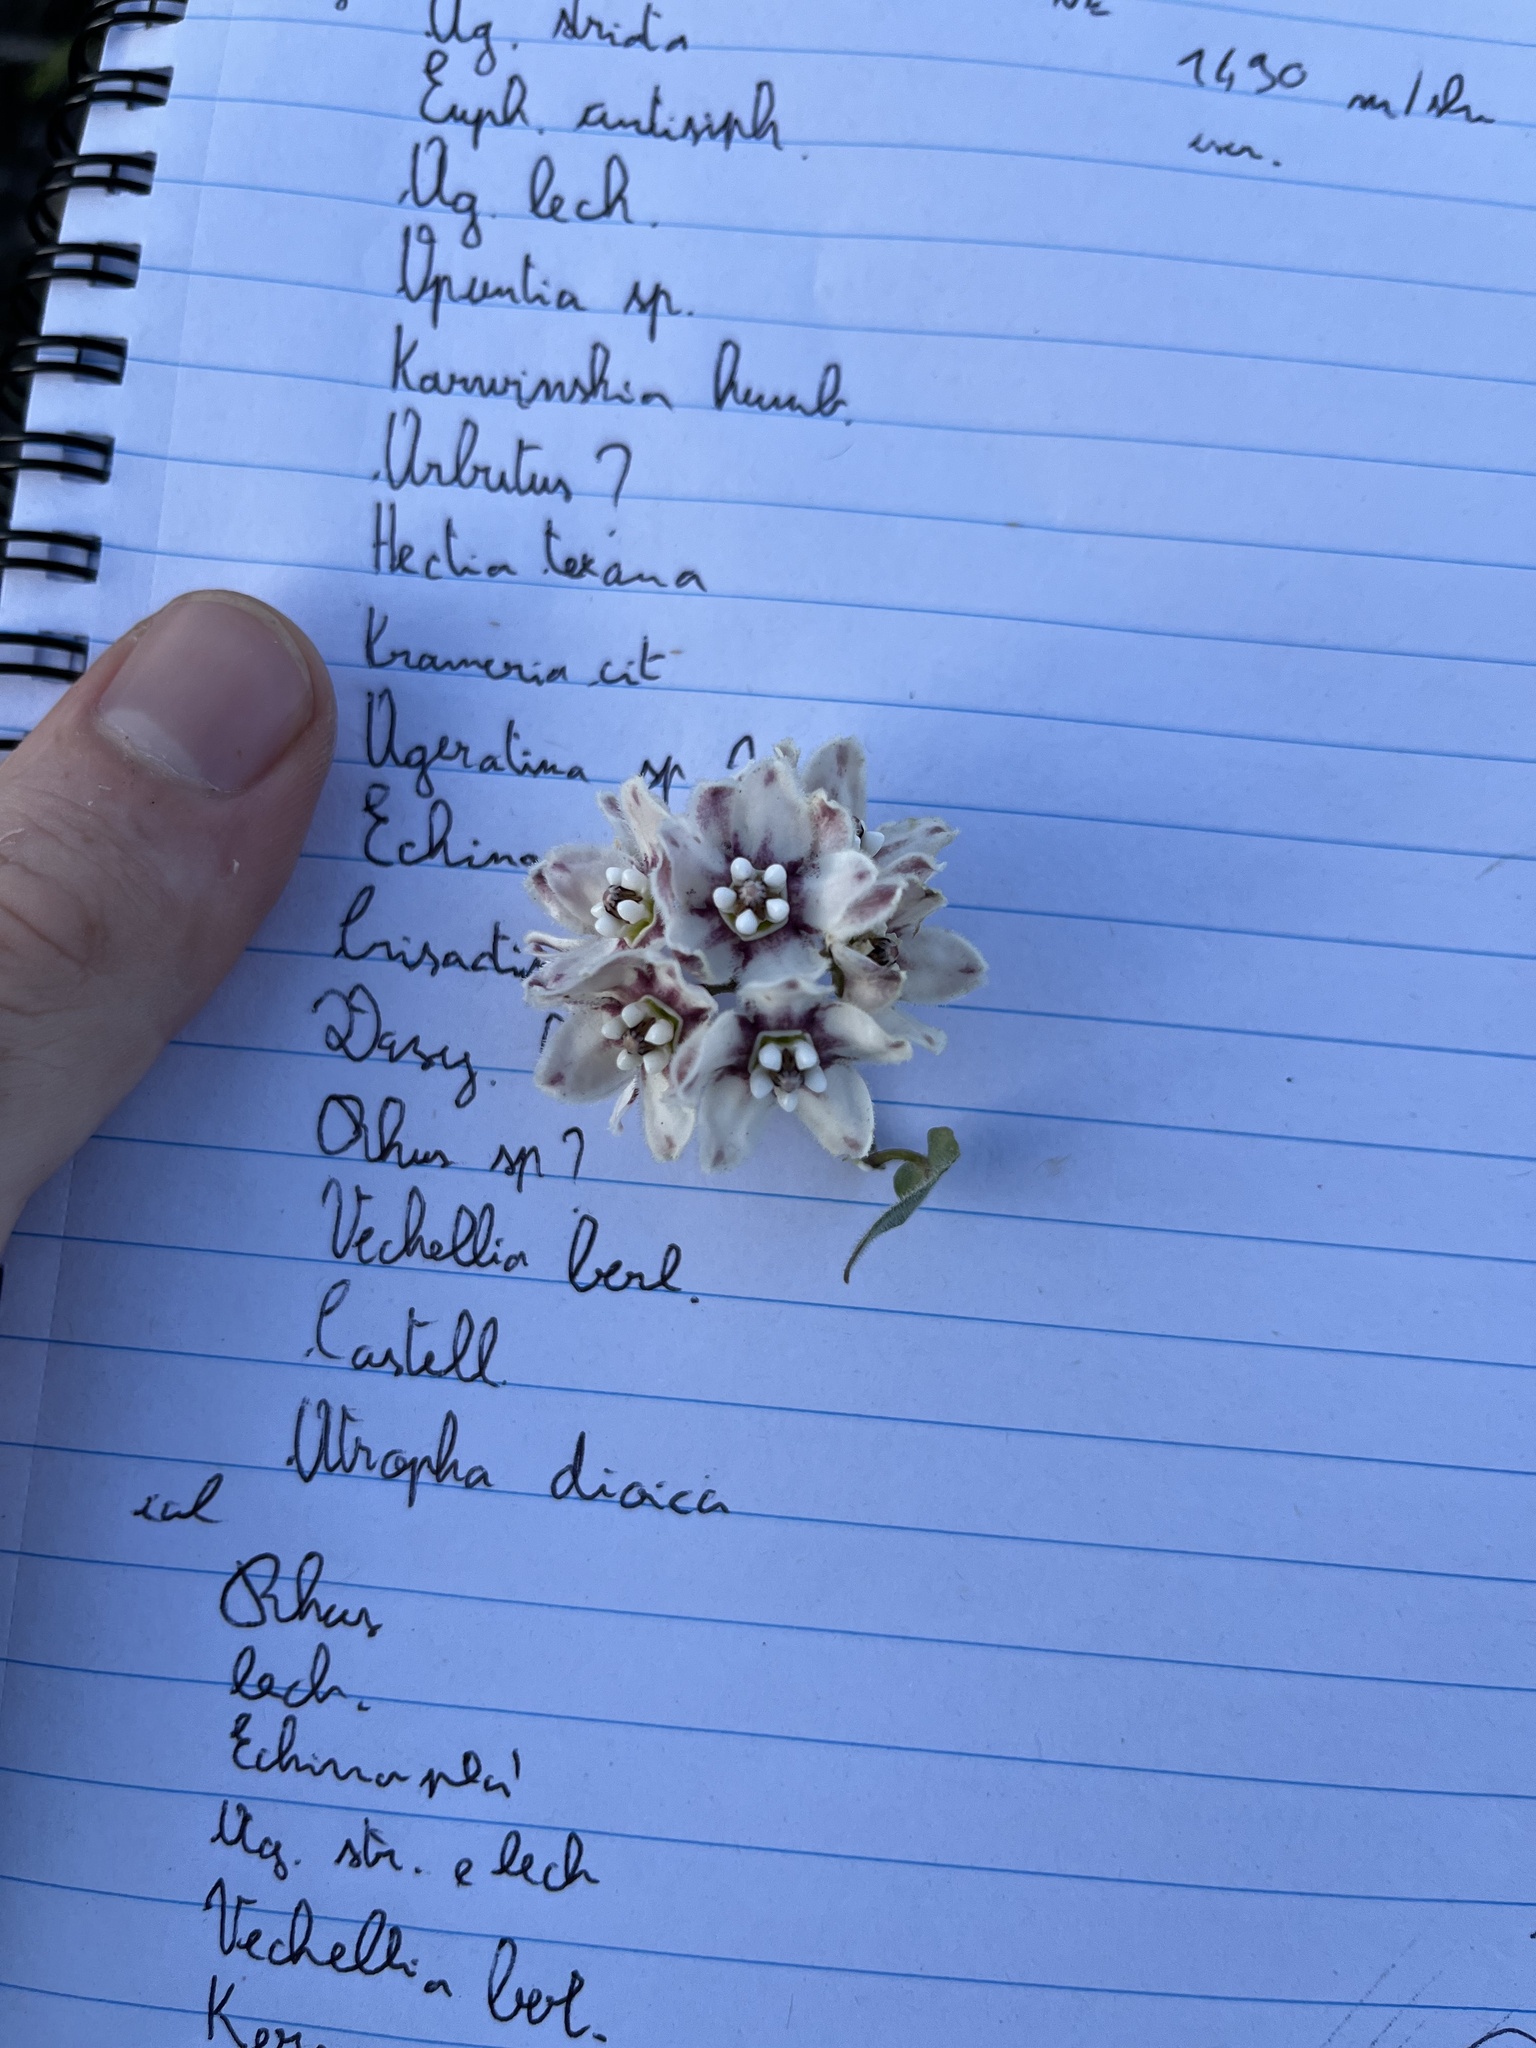 Ag. strida
1490 m/slm
Euph. antisiph.
Ag. lech.
Opuntia sp.
Karwinskia humb.
Arbutus?
Hectia texana
Krameria cit
Ageratina sp ?
Echino
Dasy.
Rhus sp?
Vechellia berl.
Castell.
Atropha dioica
Rhus
lech.
Echinopla
Ag. str. e lech
Vechellia berl.